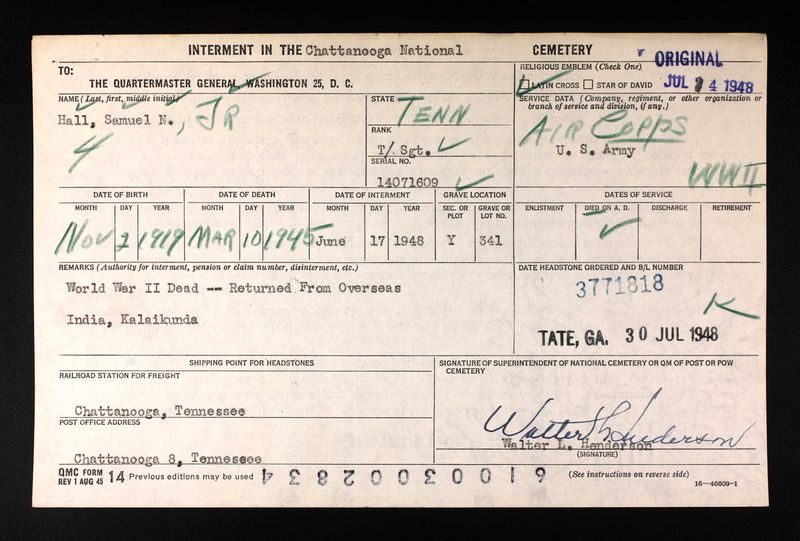 INTERMENT IN THE Chattanooga National CEMETERY
ORIGINAL
TO:
THE QUARTERMASTER GENERAL, WASHINGTON 25, D. C.
RELIGIOUS EMBLEM (Check One)
LATIN CROSS STAR OF DAVID
JUL 24 1948
NAME (Last, first, middle initial)
Hall, Samuel N., JR
4
STATE
TENN
RANK
T/Sgt.
SERIAL NO.
14071609
SERVICE DATA (Company, regiment, or other organization or branch of service and division, if any.)
AIR CORPS
U. S. Army
WWII
DATE OF BIRTH DATE OF DEATH DATE OF INTERMENT GRAVE LOCATION DATES OF SERVICE
MONTH DAY YEAR MONTH DAY YEAR MONTH DAY YEAR SEC. OR PLOT GRAVE OR LOT NO. ENLISTMENT DIED ON A. D. DISCHARGE RETIREMENT
NOV 2 1919 MAR 10 1945 June 17 1948 Y 341
REMARKS (Authority for interment, pension or claim number, disinterment, etc.)
World War II Dead -- Returned From Overseas
India, Kalaikunda
DATE HEADSTONE ORDERED AND B/L NUMBER
3771818
K
TATE, GA. 30 JUL 1948
SHIPPING POINT FOR HEADSTONES
RAILROAD STATION FOR FREIGHT
Chattanooga, Tennessee
POST OFFICE ADDRESS
Chattanooga 8, Tennessee
SIGNATURE OF SUPERINTENDENT OF NATIONAL CEMETERY OR QM OF POST OR POW CEMETERY
Walter L. Henderson
Walter L. Henderson
(SIGNATURE)
QMC FORM
REV 1 AUG 45 14 Previous editions may be used
61003002834
(See instructions on reverse side)
16—46609-1